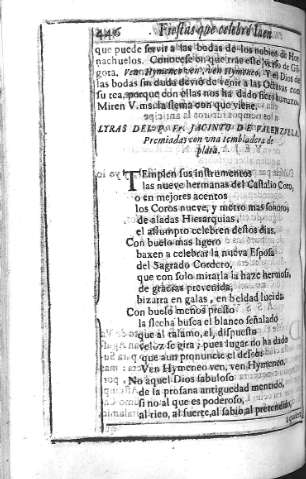 446 Fiestas que celebró Iaen
que puede servir a las bodas de los nobles de Hor
nachuelos. Conocese en que trae este verso de Gó
gora, Ven Hymeneo ven, ven Hymeneo. Y el Dios de
las bodas sin duda devió de venir a las Octavas con
su tea, porque con ellas nos ha dado fiero humazo.
Miren V.mds. la flema con que viene.
LYRAS DEL P. Fr. JACINTO DE VALENZUELA,
Premiadas con vna tembladera de
plata.
TEmplen sus instrumentos
las nueve hermanas del Castalio Coro,
o en mejores acentos
los Coros nueve, y metro mas sonoros
de aladas Hierarquias,
el assumpto celebren destos dias.
Con buelo mas ligero
baxen a celebrar la nueva Esposa
del Sagrado Cordero,
que con solo mirarla la haze hermosa,
de gracias prevenida,
bizarra en galas, en beldad lucida
Con buelo menos presto
la flecha busca el blanco señalado
que al talamo, el, dispuesto
veloz se gira; pues lugar no ha dado
que aun pronuncie el desseo
Ven Hymeneo ven, ven Hymeneo.
No aquel Dios fabuloso
de la profana antiguedad mentido,
si no al que es poderoso,
al rico, al fuerte, al sabio, al pretendido,